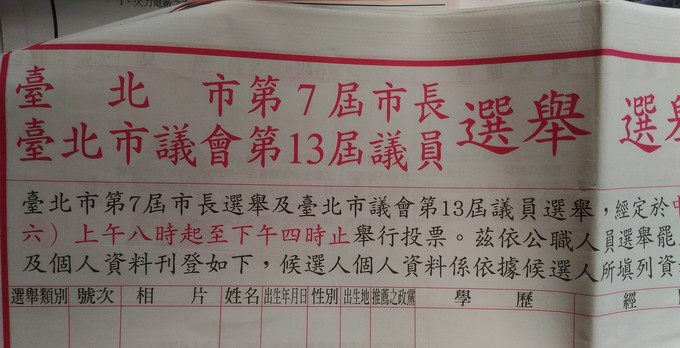 臺北市第7屆市長
臺北市議會第13屆議員
選舉
選舉
臺北市第7屆市長選舉及臺北市議會第13屆議員選舉,經定於中
六)上午八時起至下午四時止舉行投票。茲依公職人員選舉罷
及個人資料刊登如下,候選人個人資料係依據候選人所填列資
選舉類別 號次 相片 姓名 出生年月日 性別 出生地 推薦之政黨 學歷 經